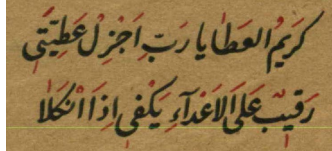 كَرِيْمُ الْعَطَايَا رَبِّ اَجْزِلْ عَطِيَّتِيْ
رَقِيْبٌ عَلَى الْاَعْدَآءِ يَكْفِيْ اِذَا انْكَلَا